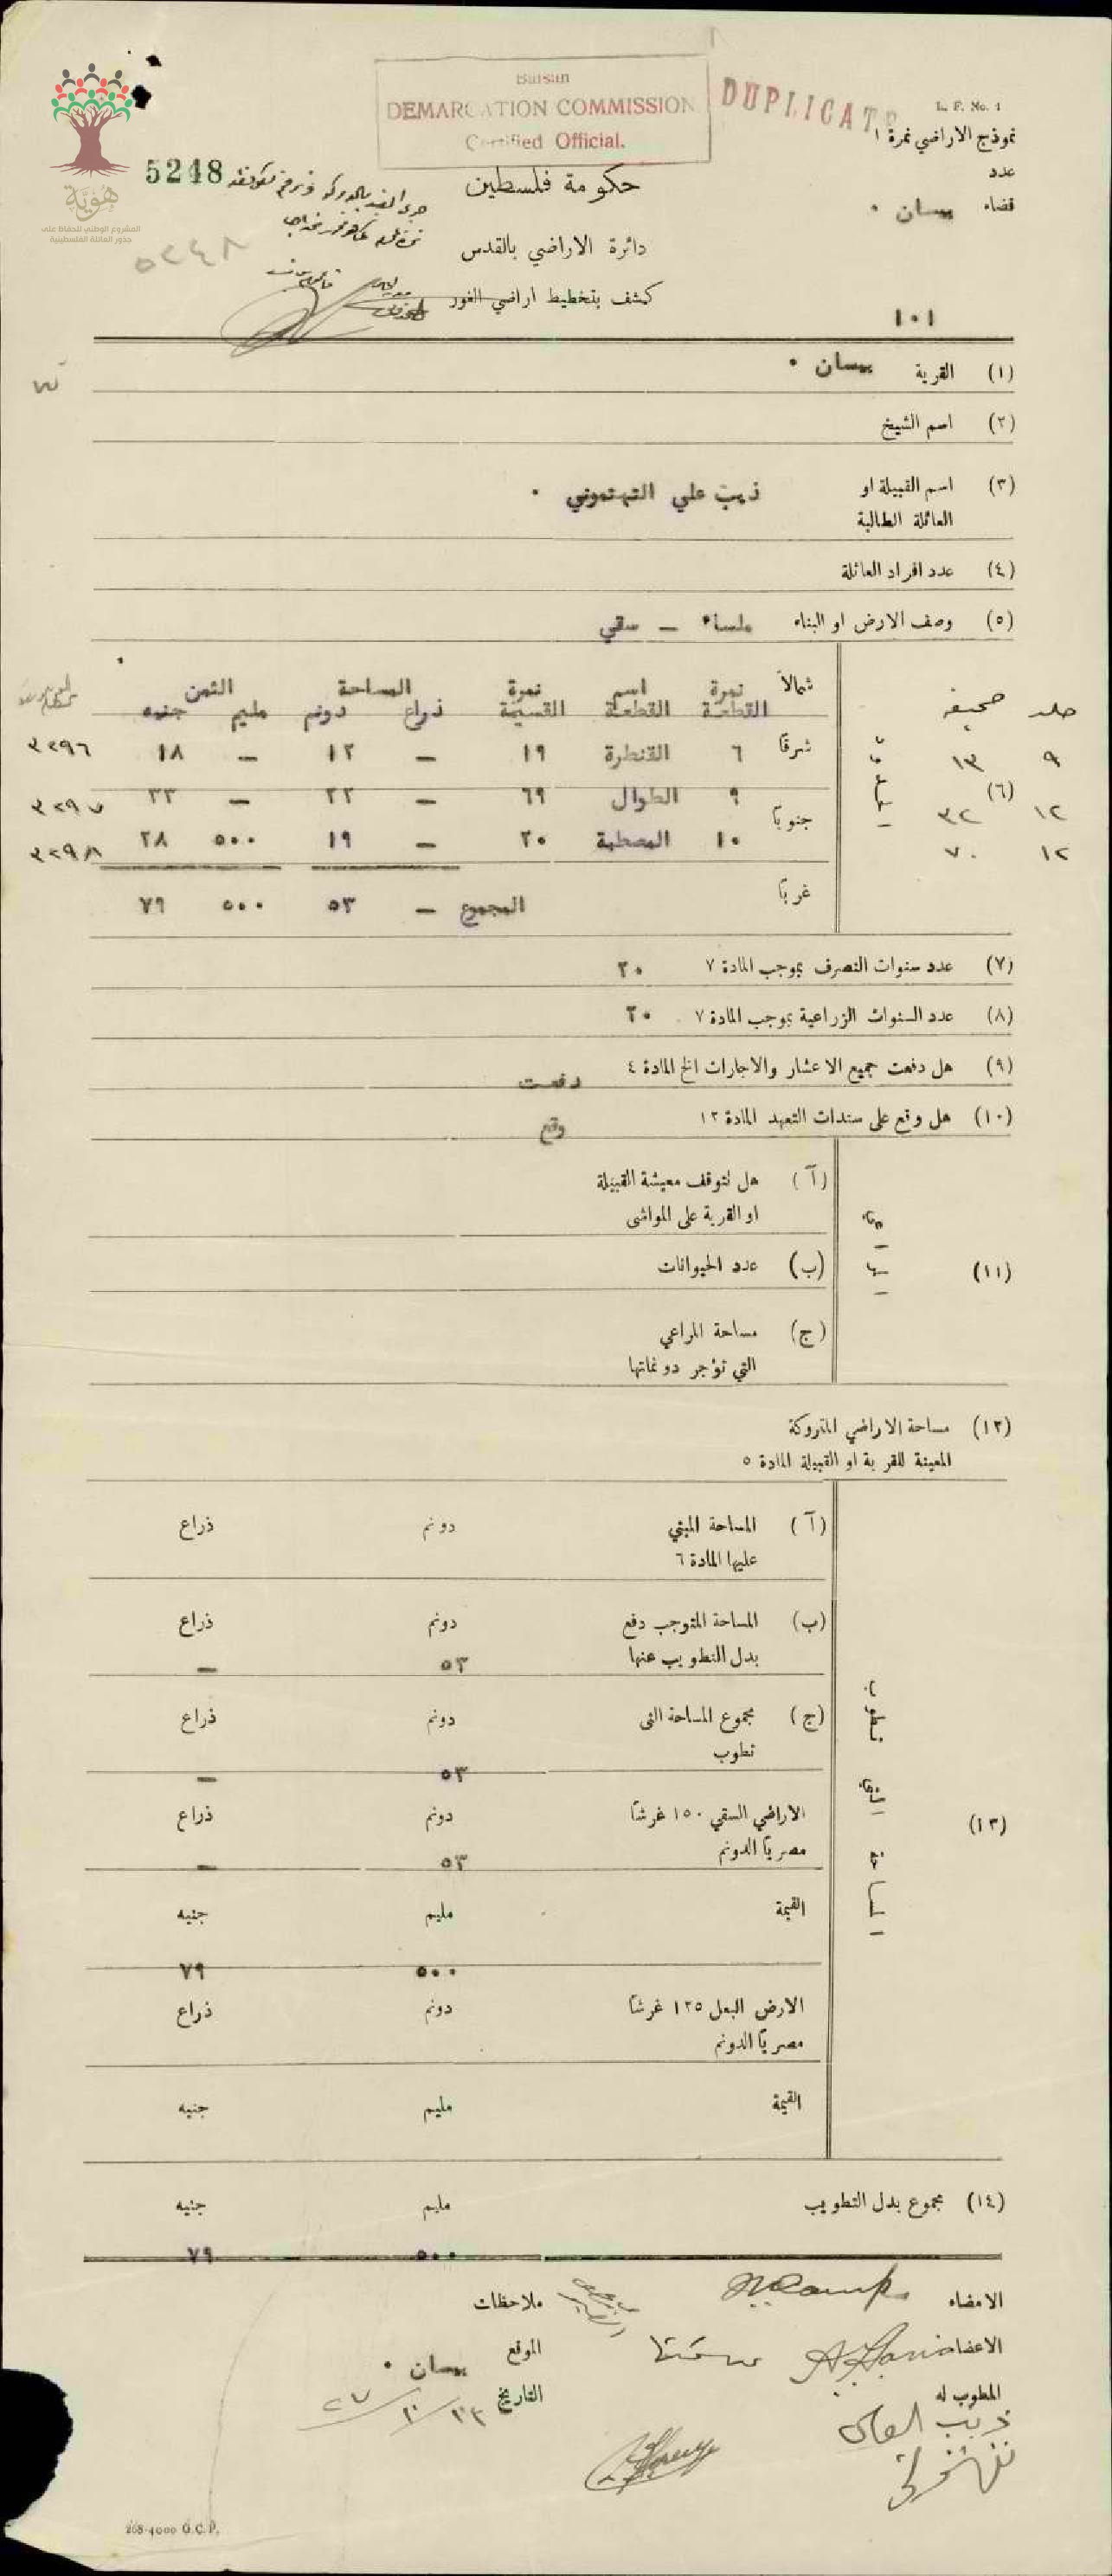 Baisan
DEMARCATION COMMISSION
Certified Official.
DUPLICATE
L. F. No. 1
نموذج الاراضي نمرة ١
عدد
قضاء بيسان ٠
هُوِيَّة
المشروع الوطني للحفاظ على
جذور العائلة الفلسطينية
5248
٥٢٤٨
حكومة فلسطين
دائرة الاراضي بالقدس
كشف بتخطيط اراضي الغور
١٠١
(١) القرية بيسان ٠
(٢) اسم الشيخ
(٣) اسم القبيلة او ذيب علي التهتموني ٠
العائلة الطالبة
(٤) عدد افراد العائلة
(٥) وصف الارض او البناء ملساء — سقي
جلد صحيفه الحدود شمالاً نمرة اسم نمرة المساحة الثمن
القطعة القطعة القسيمة ذراع دونم مليم جنيه
٩ ١٣ شرقاً ٦ القنطرة ١٩ — ١٢ — ١٨ ٣٢٩٦
١٢ ٣٢ (٦) جنوباً ٩ الطوال ٦٩ — ٢٢ — ٣٣ ٣٢٩٧
١٢ ٧٠ ١٠ المصطبة ٢٠ — ١٩ ٥٠٠ ٢٨ ٣٢٩٨
غرباً المجموع — ٥٣ ٥٠٠ ٧٩
(٧) عدد سنوات التصرف بموجب المادة ٧ ٢٠
(٨) عدد السنوات الزراعية بموجب المادة ٧ ٢٠
(٩) هل دفعت جميع الاعشار والاجارات الخ المادة ٤ دفعت
(١٠) هل وقع على سندات التعهد المادة ١٢ وقع
(١١)
(آ) هل تتوقف معيشة القبيلة
او القرية على المواشي
(ب) عدد الحيوانات
(ج) مساحة المراعي
التي تؤجر دونماتها
(١٢) مساحة الاراضي المتروكة
المعينة للقرية او القبيلة المادة ٥
(١٣) المساحة التي تطوب
(آ) المساحة المبني دونم ذراع
عليها المادة ٦
(ب) المساحة المتوجب دفع دونم ذراع
بدل التطويب عنها ٥٣ —
(ج) مجموع المساحة التي دونم ذراع
تطوب ٥٣ —
الاراضي السقي ١٥٠ غرشاً دونم ذراع
مصرياً الدونم ٥٣ —
القيمة مليم جنيه
٥٠٠ ٧٩
الارض البعل ١٢٥ غرشاً دونم ذراع
مصرياً الدونم
القيمة مليم جنيه
(١٤) مجموع بدل التطويب مليم جنيه
٥٠٠ ٧٩
الامضاء
ملاحظات
الاعضاء
الموقع بيسان ٠
المطوب له
التاريخ
268-4000 G.C.P.